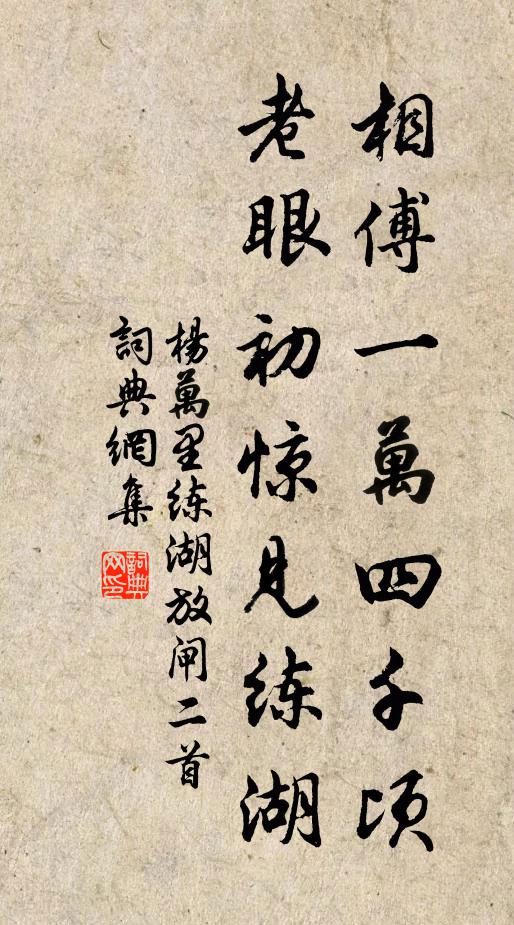 相傳一萬四千頃
老眼初惊見练湖
楊萬里练湖放闸二首
詞典網集
詞典网印